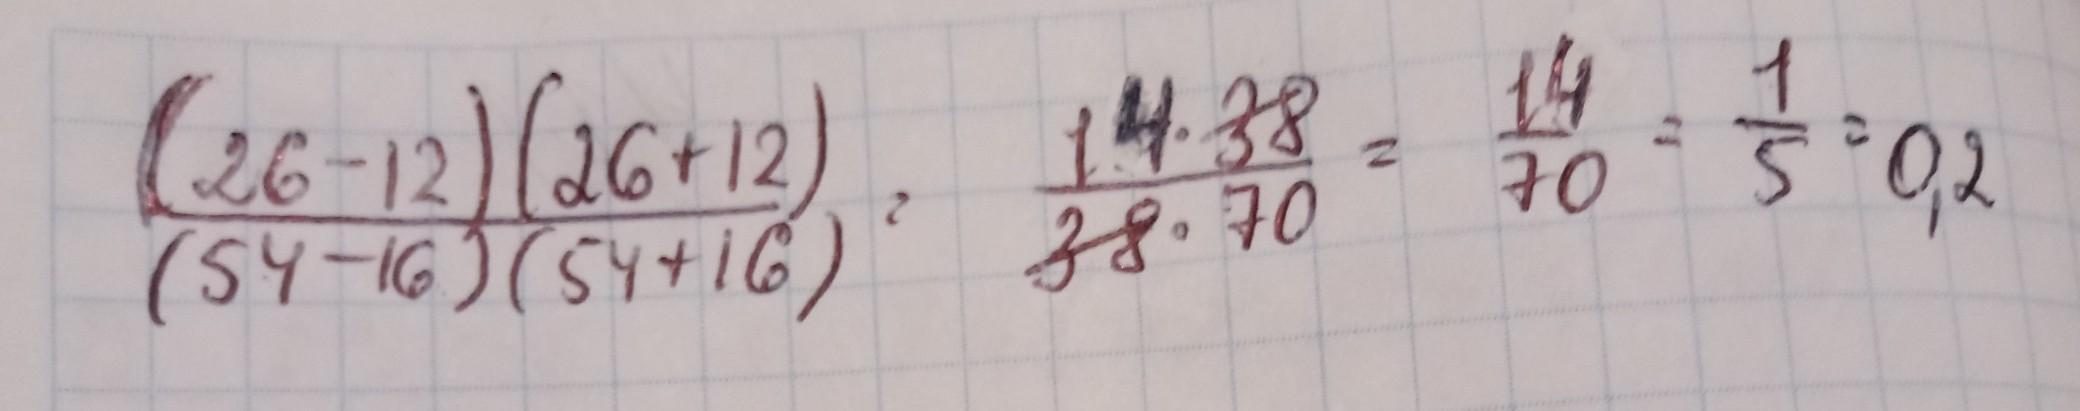 (26-12)(26+12)/(54-16)(54+16) = 14·38/38·70 = 14/70 = 1/5 = 0,2